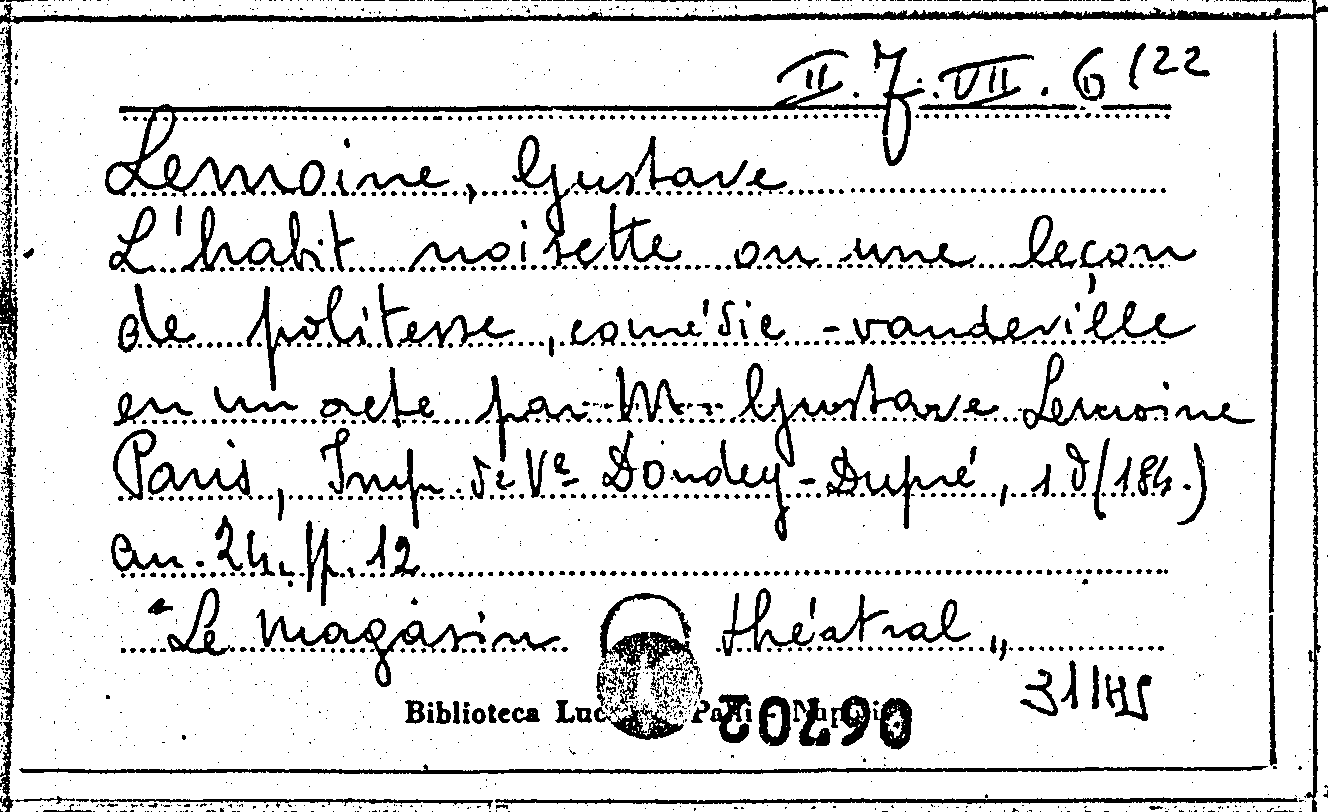 II. J. VII. 6 /22
Lemoine, Gustave
L'habit noisette ou une leçon
de politesse, comédie-vaudeville
en un acte par M. Gustave Lemoine
Paris, Imp. de Vᵉ Dondey-Dupré, 1 d (184.)
au. 24. p. 12
"Le magasin théatral„
Biblioteca Luc